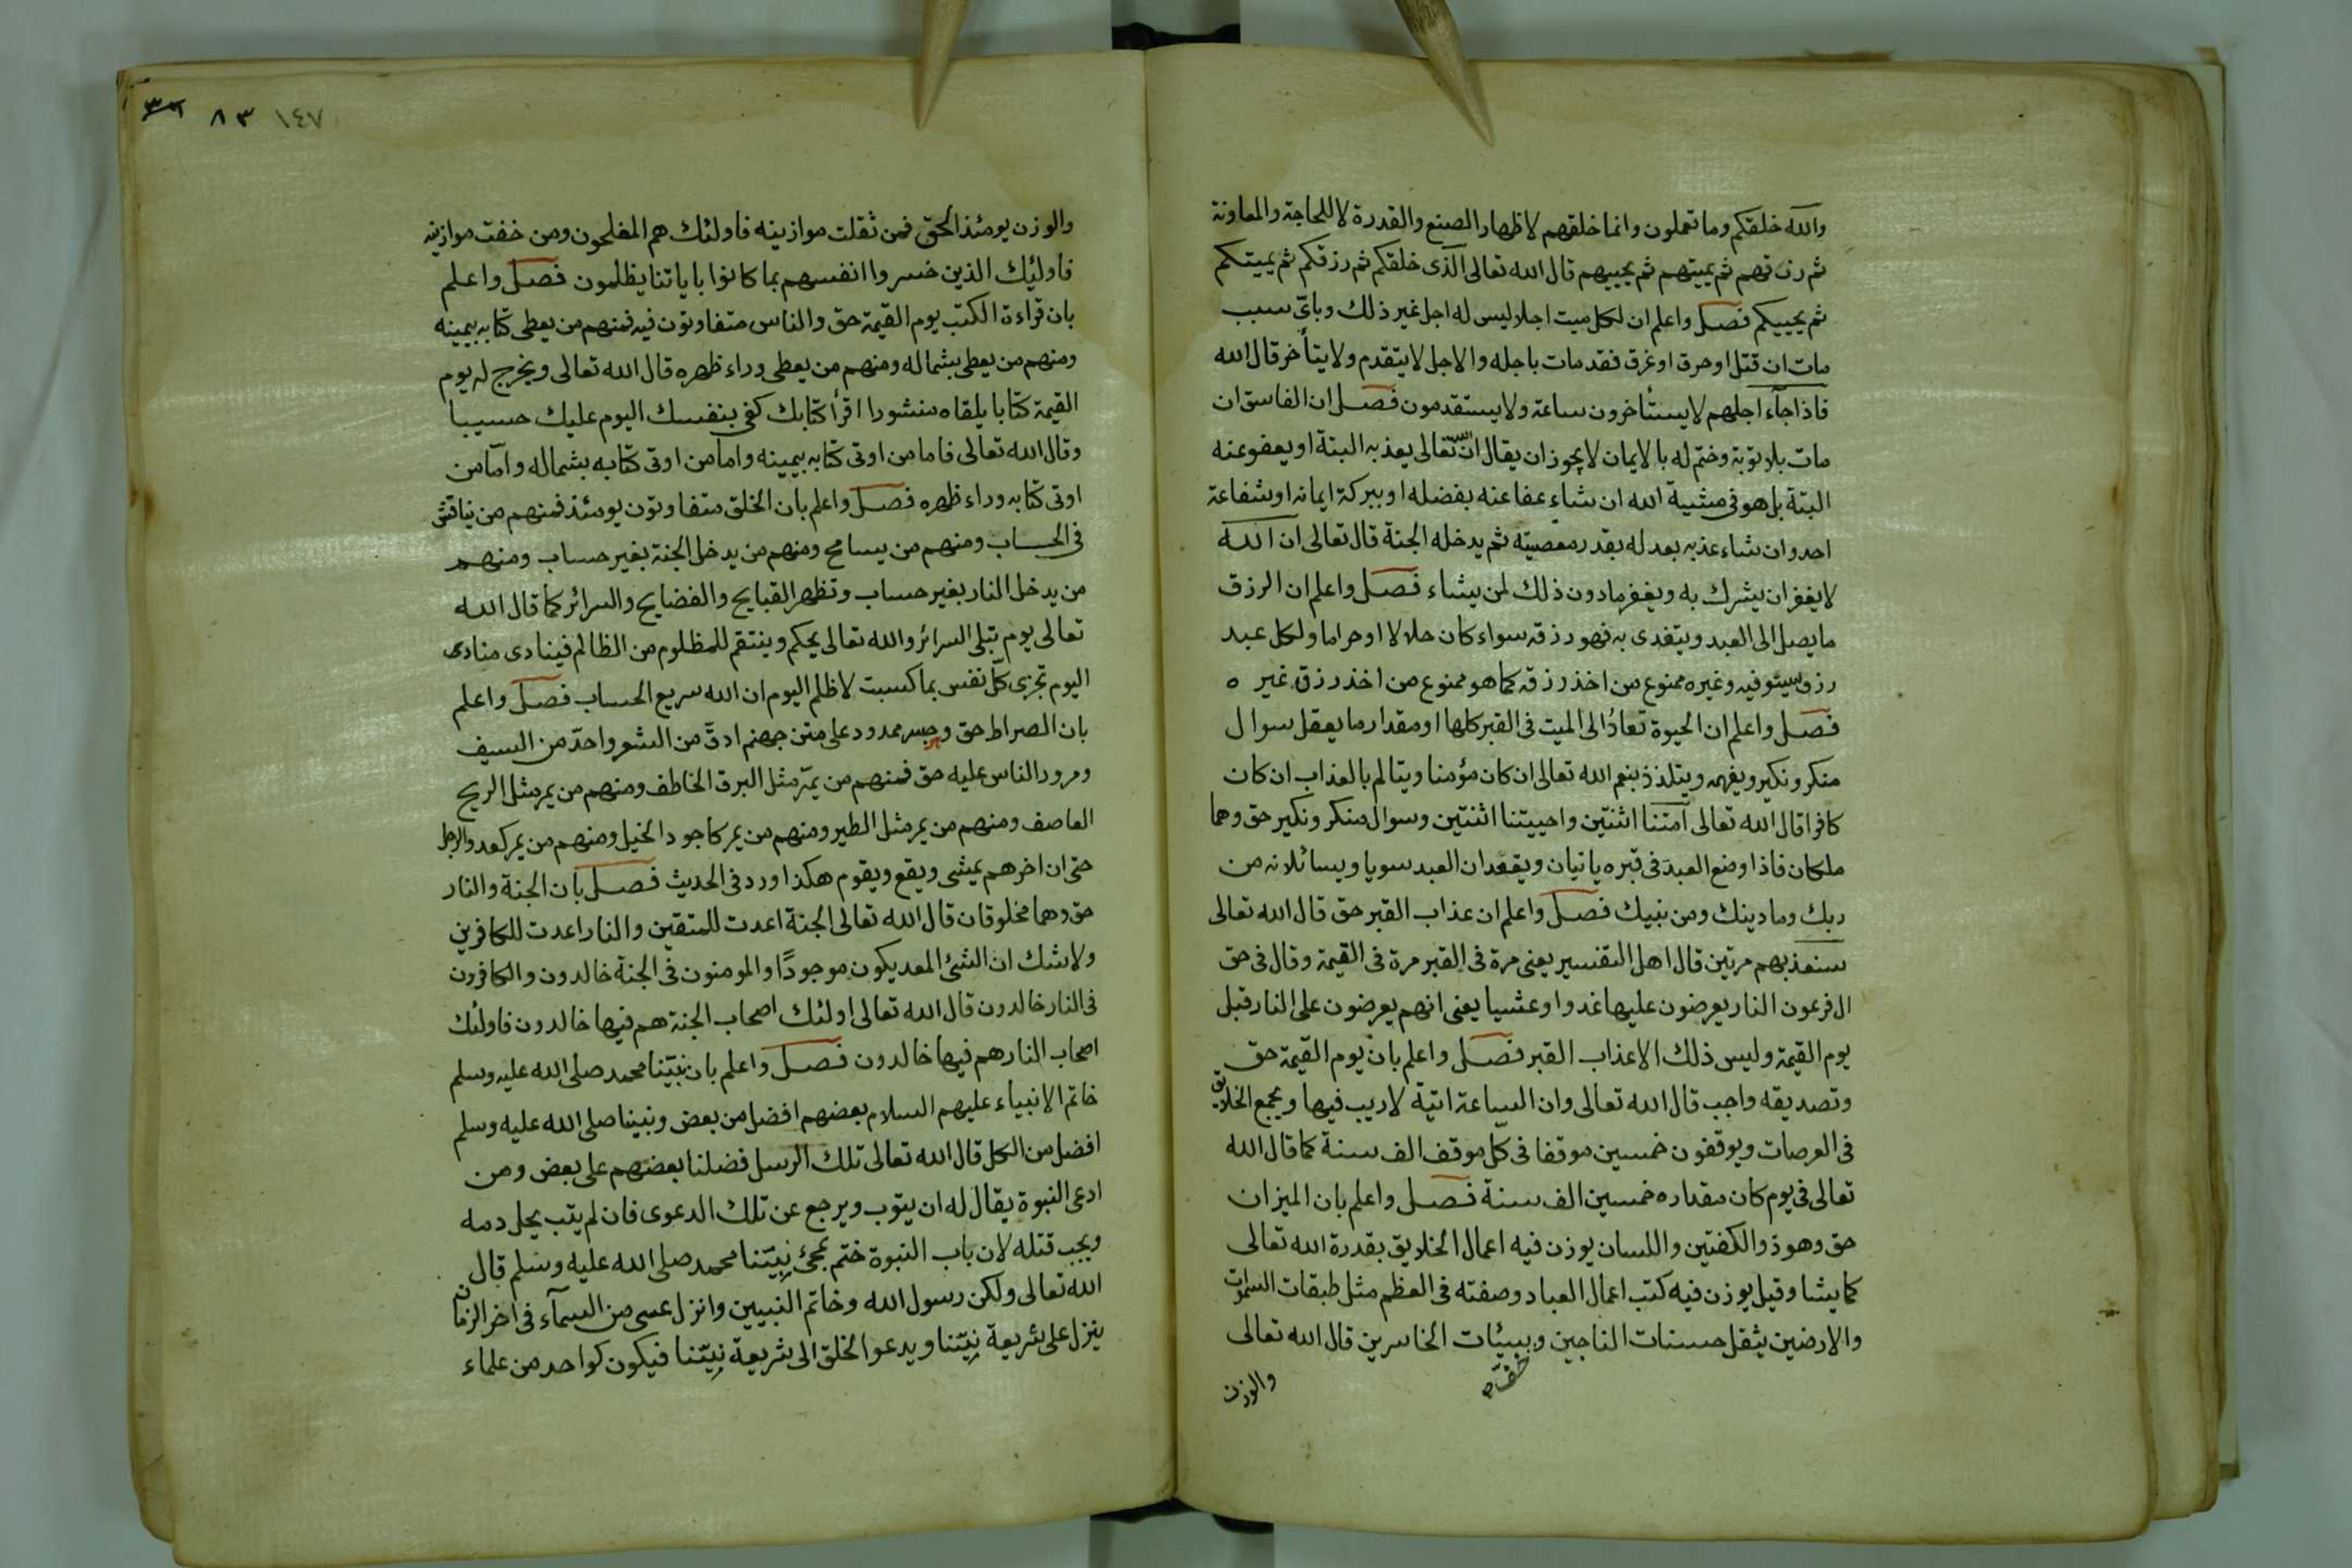 والله خلقكم وما تعملون وانما خلقهم لاظهار الصنع والقدرة لا للحاجة والمعاونة
ثم رزقهم ثم يميتهم ثم يحييهم قال الله تعالى الذى خلقكم ثم رزقكم ثم يميتكم
ثم يحييكم فصل واعلم ان لكل ميت اجلا ليس له اجل غير ذلك وباىّ سبب
مات ان قتل او حرق او غرق فقد مات باجله والاجل لا يتقدم ولا يتأخر قال الله
فاذا جآء اجلهم لا يستأخرون ساعة ولا يستقدمون فصل ان الفاسق ان
مات بلا توبة وختم له بالايمان لا يجوز ان يقال ان الله تعالى يعذبه البتة او يعفو عنه
البتة بل هو فى مشية الله ان شاء عفا عنه بفضله او ببركة ايمانه او شفاعة
احد وان شاء عذبه بعدله بقدر معصيته ثم يدخله الجنة قال تعالى ان الله
لا يغفر ان يشرك به ويغفر ما دون ذلك لمن يشاء فصل واعلم ان الرزق
ما يصل الى العبد ويتغدى به فهو رزقه سواء كان حلالا او حراما ولكل عبد
رزق سيتوفيه وغيره ممنوع من اخذ رزقه كما هو ممنوع من اخذ رزق غيره
فصل واعلم ان الحيوة تعادُ الى الميت فى القبر كلها او مقدار ما يعقل سوال
منكر ونكير ويفهمه ويتلذذ بنعم الله تعالى ان كان مؤمنا ويتالم بالعذاب ان كان
كافرا قال الله تعالى امتنا اثنتين واحييتنا اثنتين وسوال منكر ونكير حق وهما
ملكان فاذا وضع العبد فى قبره ياتيان ويقعدان العبد سويا ويسائلانه من
ربك وما دينك ومن نبيك فصل واعلم ان عذاب القبر حق قال الله تعالى
سنعذبهم مرتين قال اهل التفسير يعنى مرة فى القبر مرة فى القيمة وقال فى حق
ال فرعون النار يعرضون عليها غدوا وعشيا يعنى انهم يعرضون على النار قبل
يوم القيمة وليس ذلك الا عذاب القبر فصل واعلم بان يوم القيمة حق
وتصديقه واجب قال الله تعالى وان الساعة اتية لا ريب فيها ويجمع الخلايق
فى العرصات ويوقفون خمسين موقفا فى كل موقف الف سنة كما قال الله
تعالى فى يوم كان مقداره خمسين الف سنة فصل واعلم بان الميزان
حق وهو ذو الكفتين واللسان يوزن فيه اعمال الخلايق بقدرة الله تعالى
كما يشا وقيل يوزن فيه كتب اعمال العباد وصفته فى العظم مثل طبقات السموات
والارضين يثقل حسنات الناجين وسيئات الخاسرين قال الله تعالى
والوزن
١٤٧ ٨٣
والوزن يومئذ الحق فمن ثقلت موازينه فاولئك هم المفلحون ومن خفت موازينه
فاولئك الذين خسروا انفسهم بما كانوا باياتنا يظلمون فصل واعلم
بان قراءة الكتب يوم القيمة حق والناس متفاوتون فيه فمنهم من يعطى كتابه بيمينه
ومنهم من يعطى بشماله ومنهم من يعطى وراء ظهره قال الله تعالى ويخرج له يوم
القيمة كتابا يلقاه منشورا اقرأ كتابك كفى بنفسك اليوم عليك حسيبا
وقال الله تعالى فاما من اوتى كتابه بيمينه واما من اوتى كتابه بشماله وامّا من
اوتى كتابه وراء ظهره فصل واعلم بان الخلق متفاوتون يومئذ فمنهم من يناقش
فى الحساب ومنهم من يسامح ومنهم من يدخل الجنة بغير حساب ومنهم
من يدخل النار بغير حساب وتظهر القبايح والفضايح والسرائر كما قال الله
تعالى يوم تبلى السرائر والله تعالى يحكم وينتقم للمظلوم من الظالم فينادى منادى
اليوم تجزى كلّ نفس بما كسبت لا ظلم اليوم ان الله سريع الحساب فصل واعلم
بان الصراط حق وجسر ممدود على متن جهنم ادقّ من الشعر واحدّ من السيف
ومرور الناس عليه حق فمنهم من يمرّ مثل البرق الخاطف ومنهم من يمر مثل الريح
العاصف ومنهم من يمر مثل الطير ومنهم من يمر كاجود الخيل ومنهم من يمر كعدو الرجل
حتى ان اخرهم يمشى ويقع ويقوم هكذا ورد فى الحديث فصل بان الجنة والنار
حق وهما مخلوقان قال الله تعالى الجنة اعدت للمتقين والنار اعدت للكافرين
ولا شك ان الشئ المعد يكون موجودًا والمومنون فى الجنة خالدون والكافرون
فى النار خالدون قال الله تعالى اولئك اصحاب الجنة هم فيها خالدون فاولئك
اصحاب النار هم فيها خالدون فصل واعلم بان نبيّنا محمد صلى الله عليه وسلم
خاتم الانبياء عليهم السلام بعضهم افضل من بعض ونبينا صلى الله عليه وسلم
افضل من الكل قال الله تعالى تلك الرسل فضلنا بعضهم على بعض ومن
ادعى النبوة يقال له ان يتوب ويرجع عن تلك الدعوى فان لم يتب يحل دمه
ويجب قتله لان باب النبوة ختم بمجئ نبيّنا محمد صلى الله عليه وسلم قال
الله تعالى ولكن رسول الله وخاتم النبيين وانزل عسى من السمآء فى اخر الزمان
ينزل على شريعة نبيّنا ويدعو الخلق الى شريعة نبيّنا فيكون كواحد من علماء